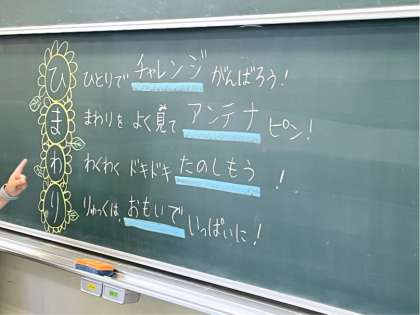 ひ ひとりで チャレンジ がんばろう!
ま まわりを よく見て アンテナ ピン!
わ わくわく ドキドキ たのしもう !
り りゅっくは、おもいで いっぱいに!